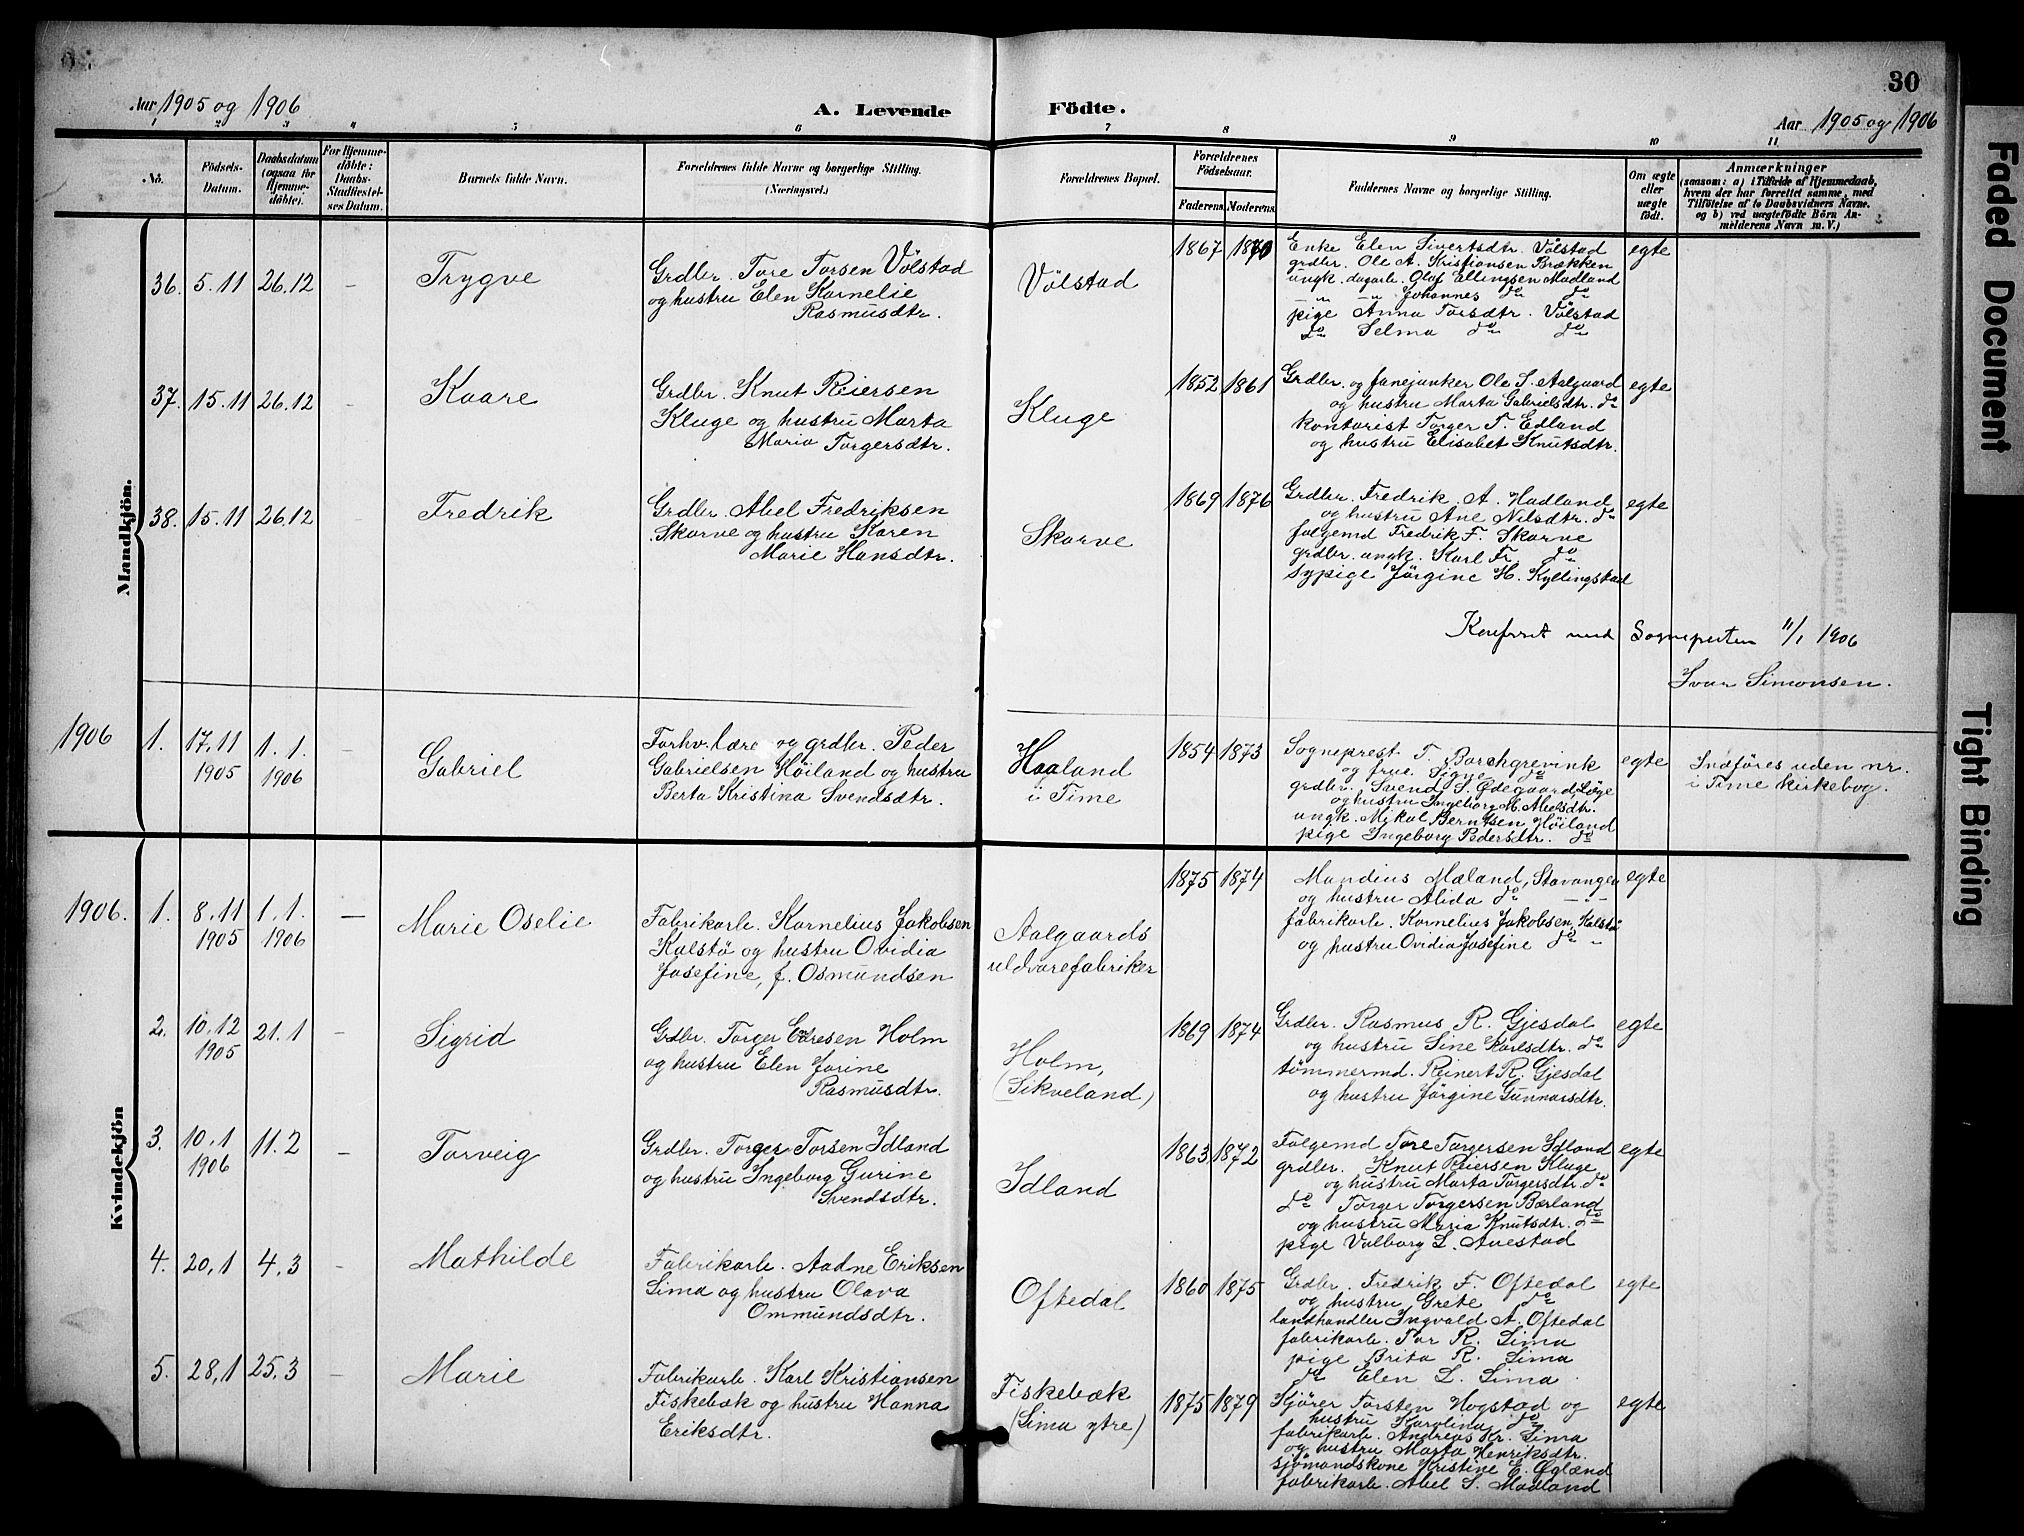 30
Aar 1905 og 1906
A. Levende Födte.
Aar 1905 og 1906
1 2 3 4 5 6 7 8 9 10 11
No.
Födsels-
Datum.
Daabsdatum
(ogsaa for
Hjemme-
döbte).
For Hjemme-
döbte:
Daabs-
Stadfæstel-
ses Datum.
Barnets fulde Navn.
Forældrenes fulde Navne og borgerlige Stilling.
(Næringsvei.)
Forældrenes Bopæl.
Forældrenes
Födselsaar.
Faderens. Moderens.
Faddernes Navne og borgerlige Stilling.
Om ægte
eller
uægte
födt.
Anmærkninger
(saasom: a) i Tilfælde af Hjemmedaab,
hvem der har forrettet samme, med
Tilföielse af to Daabsvidners Navne.
og b) ved uægtefödte Börn An-
melderens Navn m. V.)
Mandkjön.
36. 5.11 26.12 – Trygve
Grdbr. Tore Torsen Völstad
og hustru Elen Kornelie
Rasmusdtr.
Völstad
1867 1870
Enke Elen Sivertsdtr. Völstad
grdbr. Ole A. Kristiansen Brækken
ungk. dagarb. Olaf Ellingsen Madland
– " – " Johannes do do
pige Anna Torsdtr. Völstad
do Selma do do
egte
37. 15.11 26.12 – Kaare
Grdbr. Knut Reiersen
Kluge og hustru Marta
Maria Torgersdtr.
Kluge
1852 1861
Grdbr. og fanejunker Ole S. Aalgaard
og hustru Marta Gabrielsdtr. do
kontorist Torger T. Edland
og hustru Elisabet Knutsdtr.
egte
38. 15.11 26.12 – Fredrik
Grdbr. Abel Fredriksen
Skarve og hustru Karen
Marie Hansdtr.
Skarve
1869 1876
Grdbr. Fredrik A. Hadland
og hustru Ane Nilsdtr. do
folgemd Fredrik F. Skarve
grdbr. ungk. Karl Fr. do
sypige Jörgine H. Kyllingstad
egte
Konferert med Sognepresten 11/1 1906
Ivar Simonsen.
1906 1. 17.11 1905 1.1. 1906 – Gabriel
Forhv. lærer og grdbr. Peder
Gabrielsen Höiland og hustru
Berta Kristina Svendsdtr.
Haaland
i Time
1854 1873
Sogneprest T. Borchgrevink
og frue Signe do
grdbr. Svend S. Ødegaard, Løge
og hustru Ingeborg M. Abelsdtr.
ungk. Mikal Berntsen Höiland
pige Ingeborg Pedersdtr. do
egte
Indföres uden nr.
i Time kirkebog.
Kvindekjön
1906. 1. 8.11 1905 1.1. 1906 – Marie Oselie
Fabrikarb. Kornelius Jakobsen
Kalstö og hustru Ovidia
Josefine, f. Osmundsen
Aalgaards
uldvarefabriker
1875 1874
Mandius Mæland, Stavanger
og hustru Alida do – " –
fabrikarb. Kornelius Jakobsen, Kalstö
og hustru Ovidia Josefine do "
egte
2. 10.12 1905 21.1 – Sigrid
Grdbr. Torger Edresen Holm
og hustru Elen Jorine
Rasmusdtr.
Holm,
(Sikveland)
1869 1874
Grdbr. Rasmus R. Gjesdal
og hustru Sine Karlsdtr. do
tömmermd. Reinert R. Gjesdal
og hustru Jörgine Gunnarsdtr.
egte
3. 10.1 1906 11.2 – Torveig
Grdbr. Torger Torsen Idland
og hustru Ingeborg Gurine
Svendsdtr.
Idland
1863 1872
Folgemd Tore Torgersen Idland
grdbr. Knut Reiersen Kluge
og hustru Marta Torgersdtr. do
do Torger Torgersen Bærland
og hustru Maria Knutsdtr. do
pige Valborg L. Auestad
egte
4. 20.1 4.3 – Mathilde
Fabrikarb. Aadne Eriksen
Lima og hustru Olava
Ommundsdtr.
Oftedal
1860 1875
Grdbr. Fredrik F. Oftedal
og hustru Grete do
landhandler Ingvald A. Oftedal
fabrikarb. Tor R. Lima
pige Brita R. Lima
do Elen L. Lima
egte
5. 28.1 25.3 – Marie
Fabrikarb. Karl Kristiansen
Fiskebæk og hustru Hanna
Eriksdtr.
Fiskebæk
(Lima ytre)
1875 1879
Kjörer Torsten Hogstad og
hustru Karolina do
fabrikarb. Andreas Kr. Lima
og hustru Marta Henriksdtr.
sjömandskone Kristine E. Øglænd
fabrikarb. Abel S. Madland
egte
Faded Document
Tight Binding